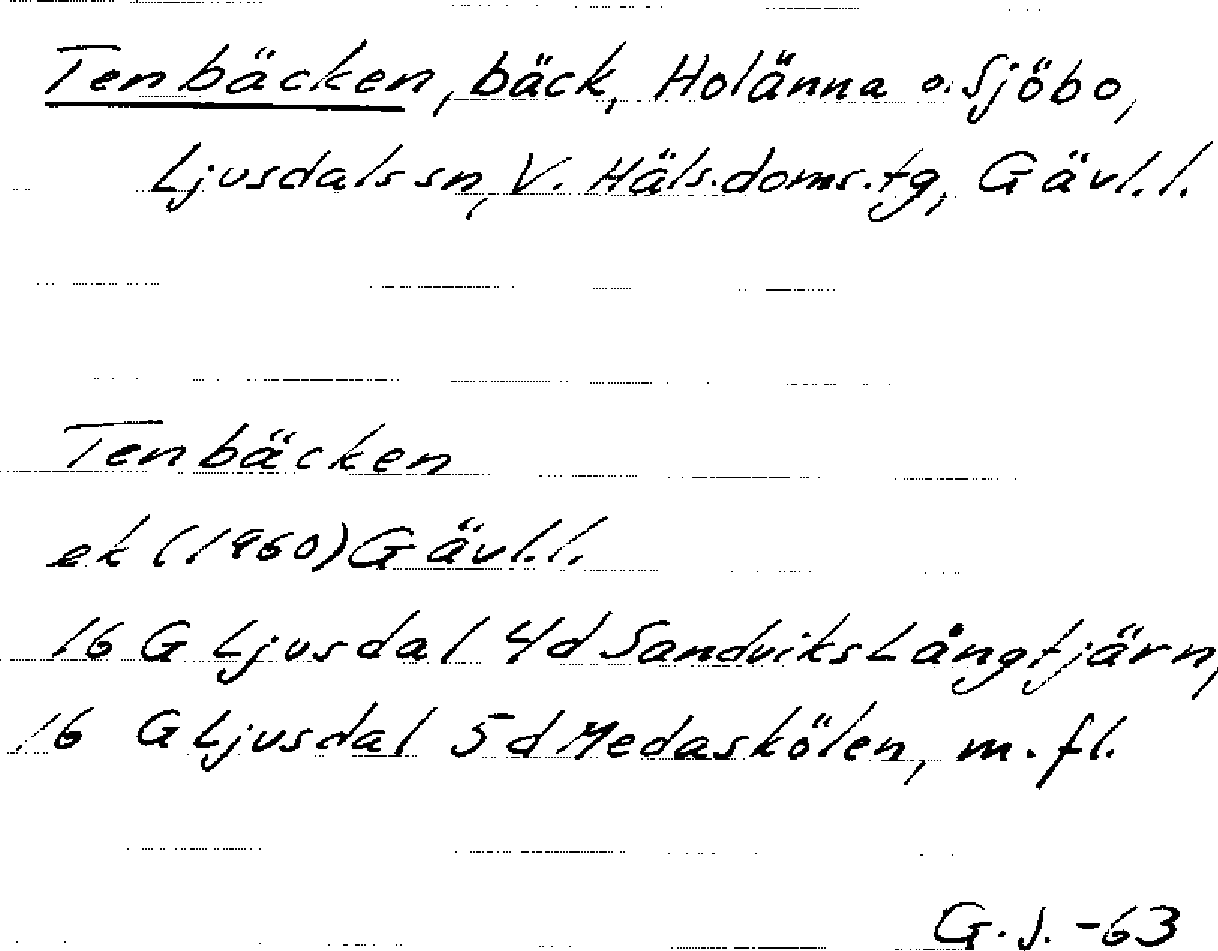 Tenbäcken, bäck, Holänna o. Sjöbo,
Ljusdals sn, V. Häls. doms. tg, Gävl. l.
Tenbäcken
ek (1960) Gävl. l.
16 G Ljusdal 4d Sandviks Långtjärn,
16 G Ljusdal 5d Medaskölen, m. fl.
G. J. -63